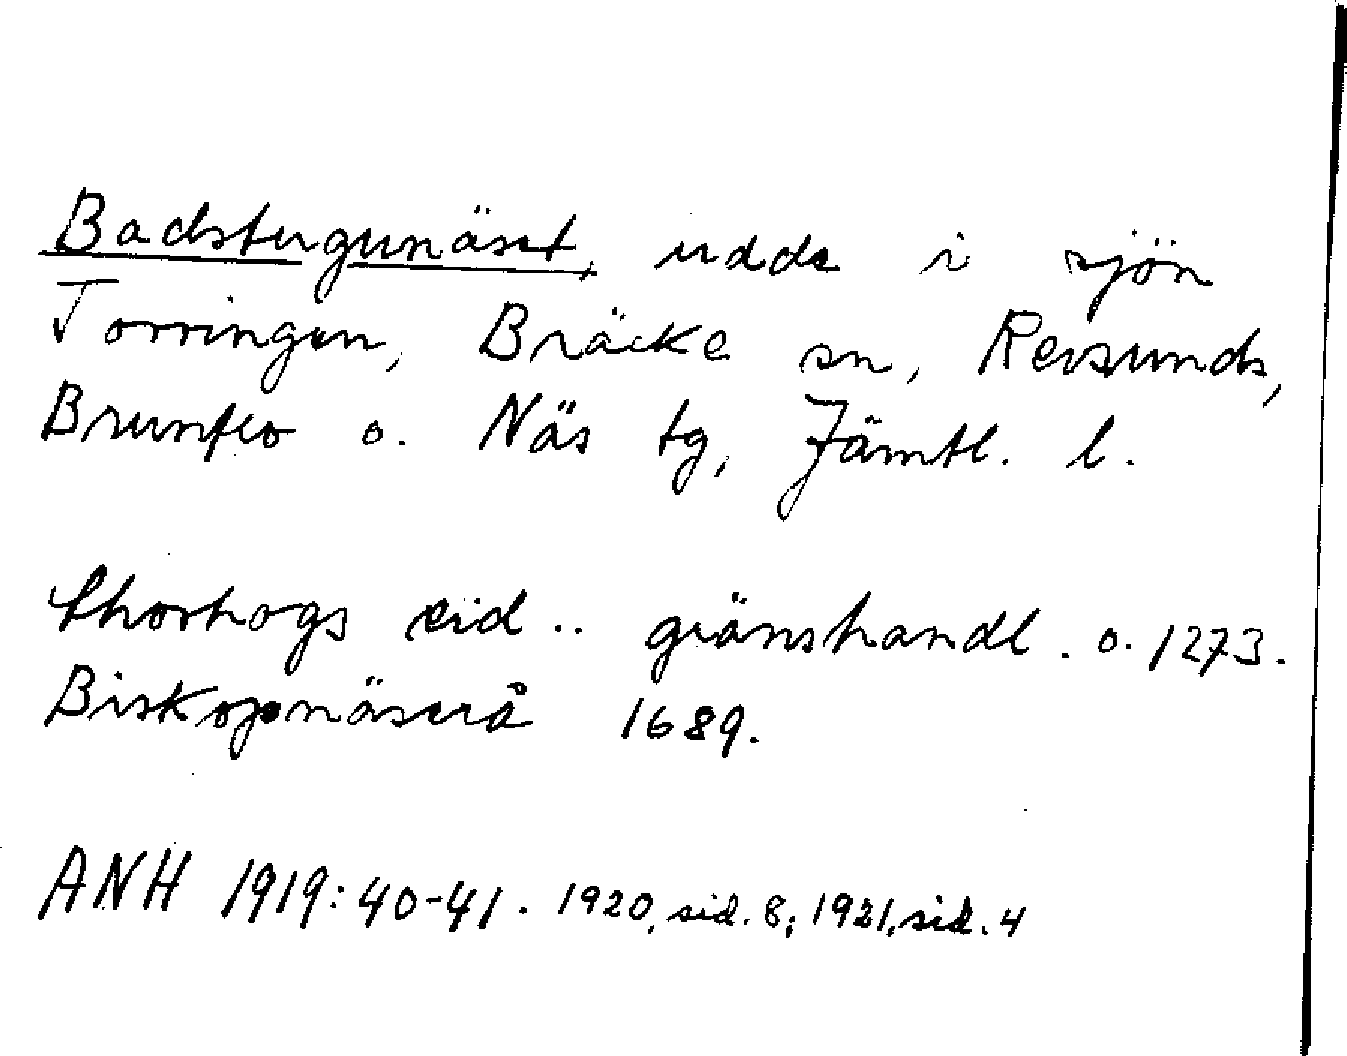 Badstugunäset, udde i sjön
Torringen, Bräcke sn, Revsunds,
Brunflo o. Näs tg, Jämtl. l.
thorhogs eid .. gränshandl. o. 1273.
Biskopnäsrå 1689.
ANH 1919:40-41. 1920, sid. 8; 1921, sid. 4